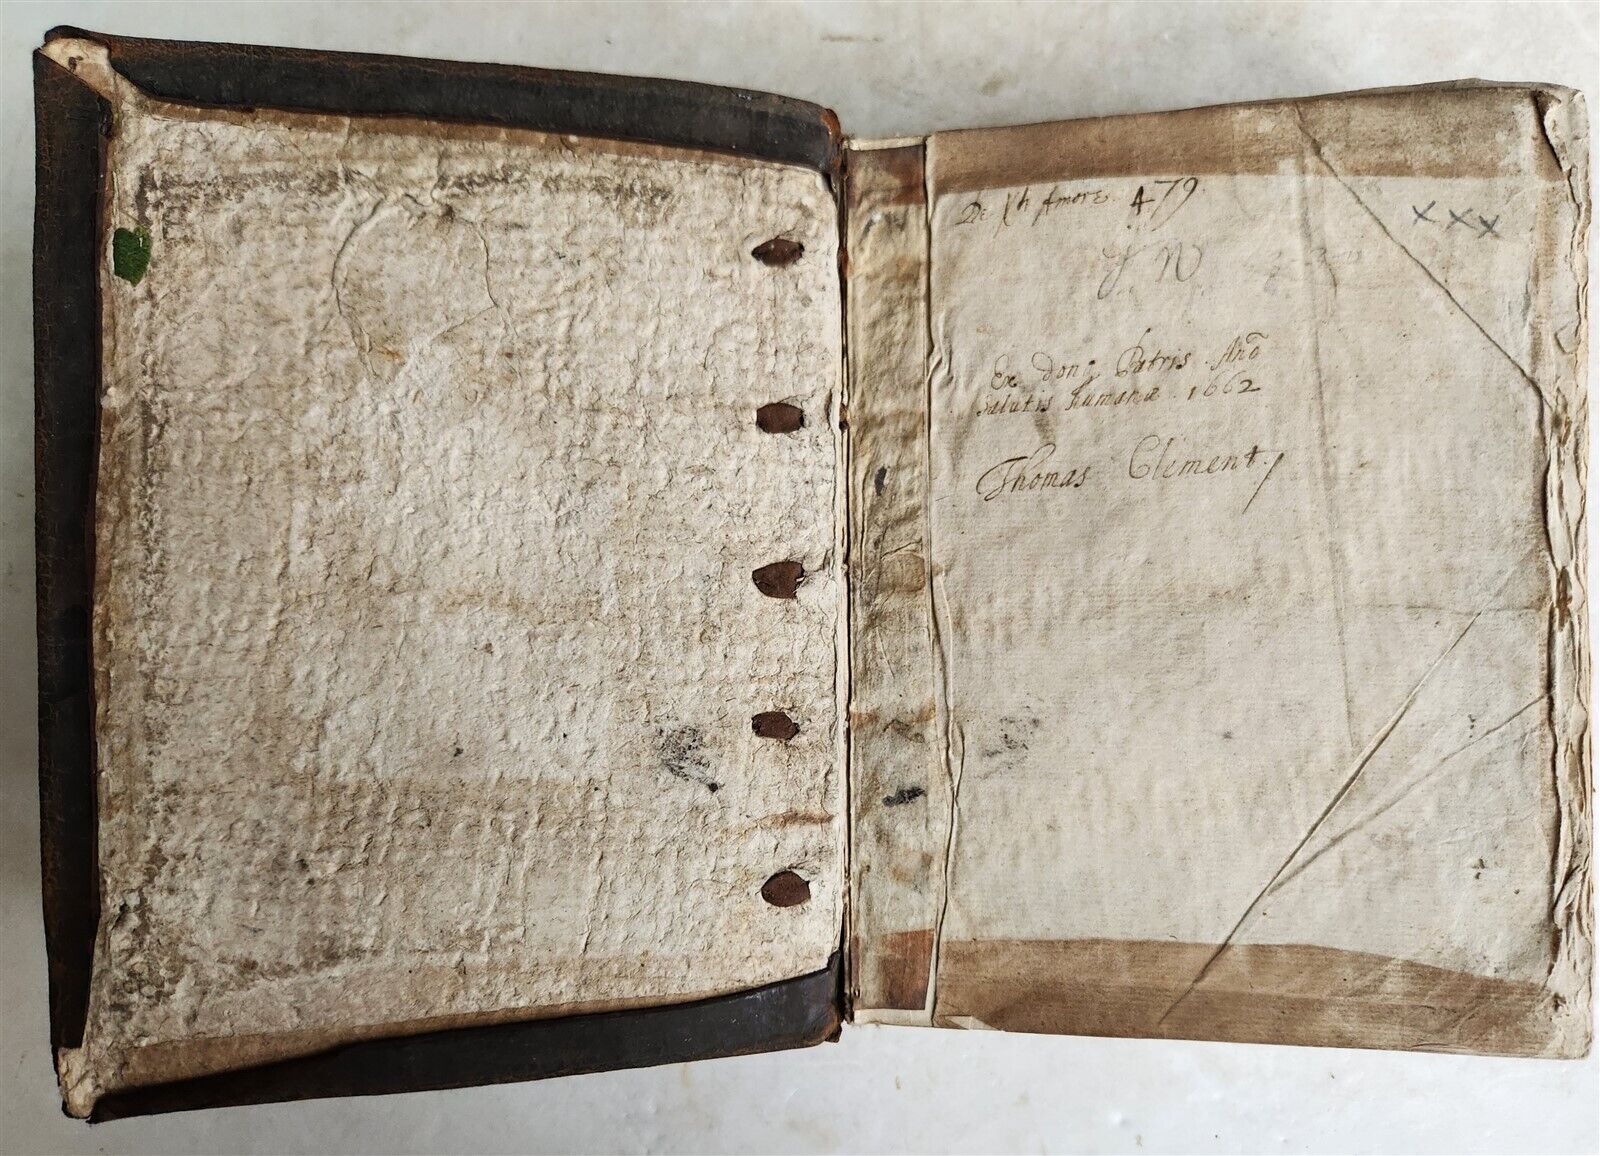 De Xti Amore. 479
J N
x x x
Ex dono Patris. Anõ
Salutis humanæ. 1662
Thomas Clement.